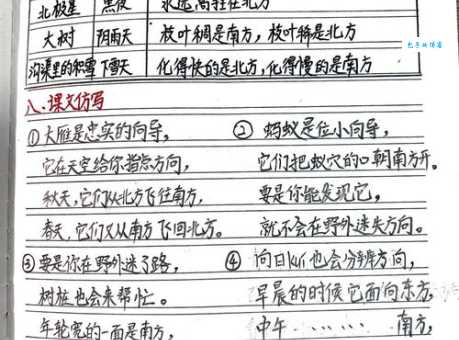 北极星 黑夜 永远高挂在北方
大树 阴雨天 枝叶稠是南方，枝叶稀是北方
沟渠里的积雪 下雪天 化得快的是北方，化得慢的是南方
八、课文仿写
①大雁是忠实的向导，
它在天空给你指点方向，
秋天，它们从北方飞往南方，
春天，它们又从南方飞回北方。
②蚂蚁是位小向导，
它们把蚁穴的口朝南方开。
要是你能发现它，
就不会在野外迷失方向。
③要是你在野外迷了路，
树桩也会来帮忙。
年轮宽的一面是南方，
④向日kui也会分辨方向，
早晨的时候它面向东方，
中午……南方，